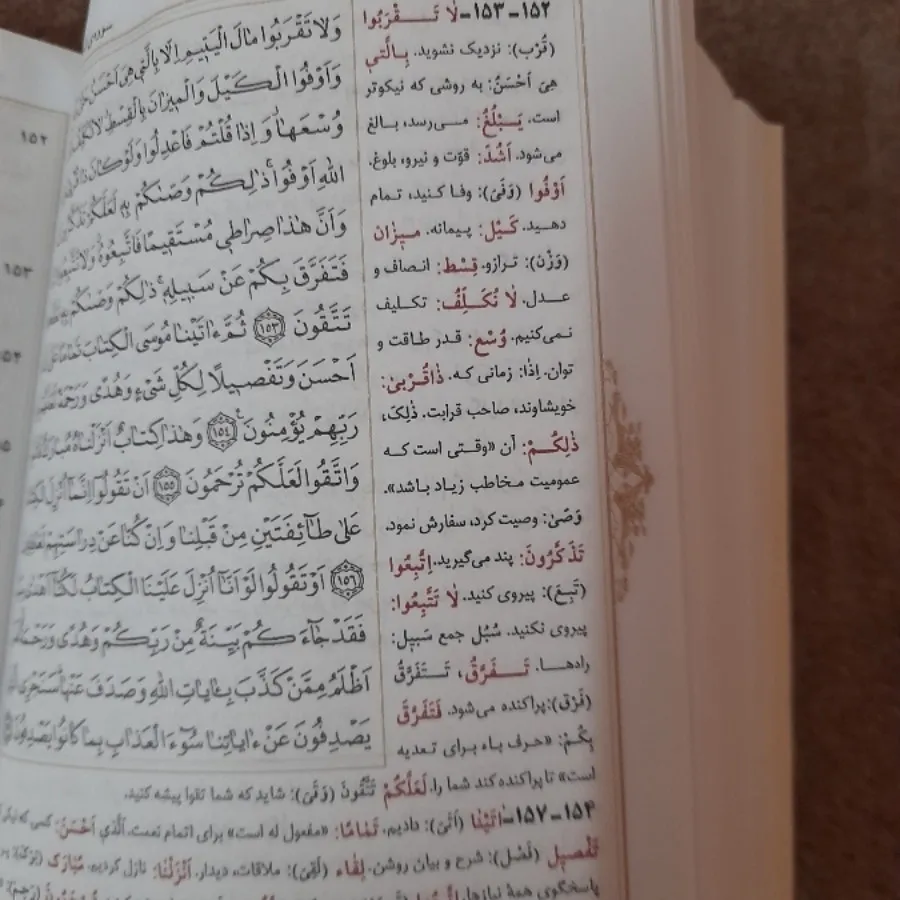 وَلَا تَقْرَبُوا مَالَ الْيَتِيمِ إِلَّا بِالَّتِي هِيَ أَحْسَنُ
وَأَوْفُوا الْكَيْلَ وَالْمِيزَانَ بِالْقِسْطِ لَا نُكَلِّفُ
وُسْعَهَا وَإِذَا قُلْتُمْ فَاعْدِلُوا وَلَوْ كَانَ ذَا قُرْبَى
اللهِ أَوْفُوا ذَلِكُمْ وَصَّىكُمْ بِهِ لَعَلَّكُمْ تَذَكَّرُونَ
وَأَنَّ هَذَا صِرَاطِي مُسْتَقِيمًا فَاتَّبِعُوهُ وَلَا تَتَّبِعُوا
فَتَفَرَّقَ بِكُمْ عَنْ سَبِيلِهِ ذَلِكُمْ وَصَّىكُمْ بِهِ
تَتَّقُونَ ﴿١٥٣﴾ ثُمَّ ءَاتَيْنَا مُوسَى الْكِتَابَ تَمَامًا عَلَى
أَحْسَنَ وَتَفْصِيلًا لِكُلِّ شَيْءٍ وَهُدًى وَرَحْمَةً
رَبِّهِمْ يُؤْمِنُونَ ﴿١٥٤﴾ وَهَذَا كِتَابٌ أَنْزَلْنَاهُ مُبَارَكٌ
وَاتَّقُوا لَعَلَّكُمْ تُرْحَمُونَ ﴿١٥٥﴾ أَنْ تَقُولُوا إِنَّمَا أُنْزِلَ
عَلَى طَائِفَتَيْنِ مِنْ قَبْلِنَا وَإِنْ كُنَّا عَنْ دِرَاسَتِهِمْ
﴿١٥٦﴾ أَوْ تَقُولُوا لَوْ أَنَّا أُنْزِلَ عَلَيْنَا الْكِتَابُ لَكُنَّا
فَقَدْ جَاءَكُمْ بَيِّنَةٌ مِنْ رَبِّكُمْ وَهُدًى وَرَحْمَةٌ
أَظْلَمُ مِمَّنْ كَذَّبَ بِـَايَاتِ اللهِ وَصَدَفَ عَنْهَا سَنَجْزِي
يَصْدِفُونَ عَنْ ءَايَاتِنَا سُوءَ الْعَذَابِ بِمَا كَانُوا يَصْدِفُونَ
١٥٢-١٥٣- لَا تَـقْرَبُوا
(قُرْب): نزدیک نشوید. بِالَّتي
هِيَ أَحْسَنُ: به روشی که نیکوتر
است. يَـبْلُغُ: می‌رسد، بـالغ
می‌شود. أَشُدَّ: قوّت و نیرو، بلوغ.
أَوْفُوا (وَفَیَ): وفا کنید، تـمام
دهید. كَيْل: پیمانه. مـيزان
(وَزْن): ترازو. قِسْط: انـصاف و
عـدل. لَا نُكَـلِّفُ: تکـلیف
نـمی‌کنیم. وُسْع: قدر طاقت و
توان. إِذَا: زمانی که. ذَاقُرْبیٰ:
خویشاوند، صاحب قرابت. ذٰلِكَ،
ذٰلِكُمْ: آن «وقـتی است کـه
عمومیت مخاطب زیاد باشد».
وَصّیٰ: وصیت کرد، سفارش نمود.
تَذَكَّرُونَ: پند می‌گیرید. اِتَّبِعُوا
(تَبِعَ): پیروی کنید. لَا تَتَّبِعُوا:
پیروی نکنید. سُبُل جمع سَبیل:
راه‌هـا. تَـفَرَّقُ، تَـتَفَرَّقُ
(فَرْق): پراکنده می‌شود. فَتَفَرَّقَ
بِكُمْ: «حرف باء برای تـعدیه
است» تا پراکنده کند شما را. لَعَلَّكُمْ تَتَّقُونَ (وَقَیَ): شاید که شما تقوا پیشه کنید.
١٥٤-١٥٧- آتَيْنَا (أَتَیَ): دادیم. تَمَامًا: «مفعول له است» برای اتمام نعمت. الَّذي أَحْسَنَ: کسی که
تَفْصيل (فَصْل): شرح و بیان روشن. لِقاء (لَقِیَ): ملاقات، دیدار. أَنْزَلْنَا: نازل کردیم. مُبَارَك
پاسخگوی همهٔ نیازها.
١٥٢
١٥٣